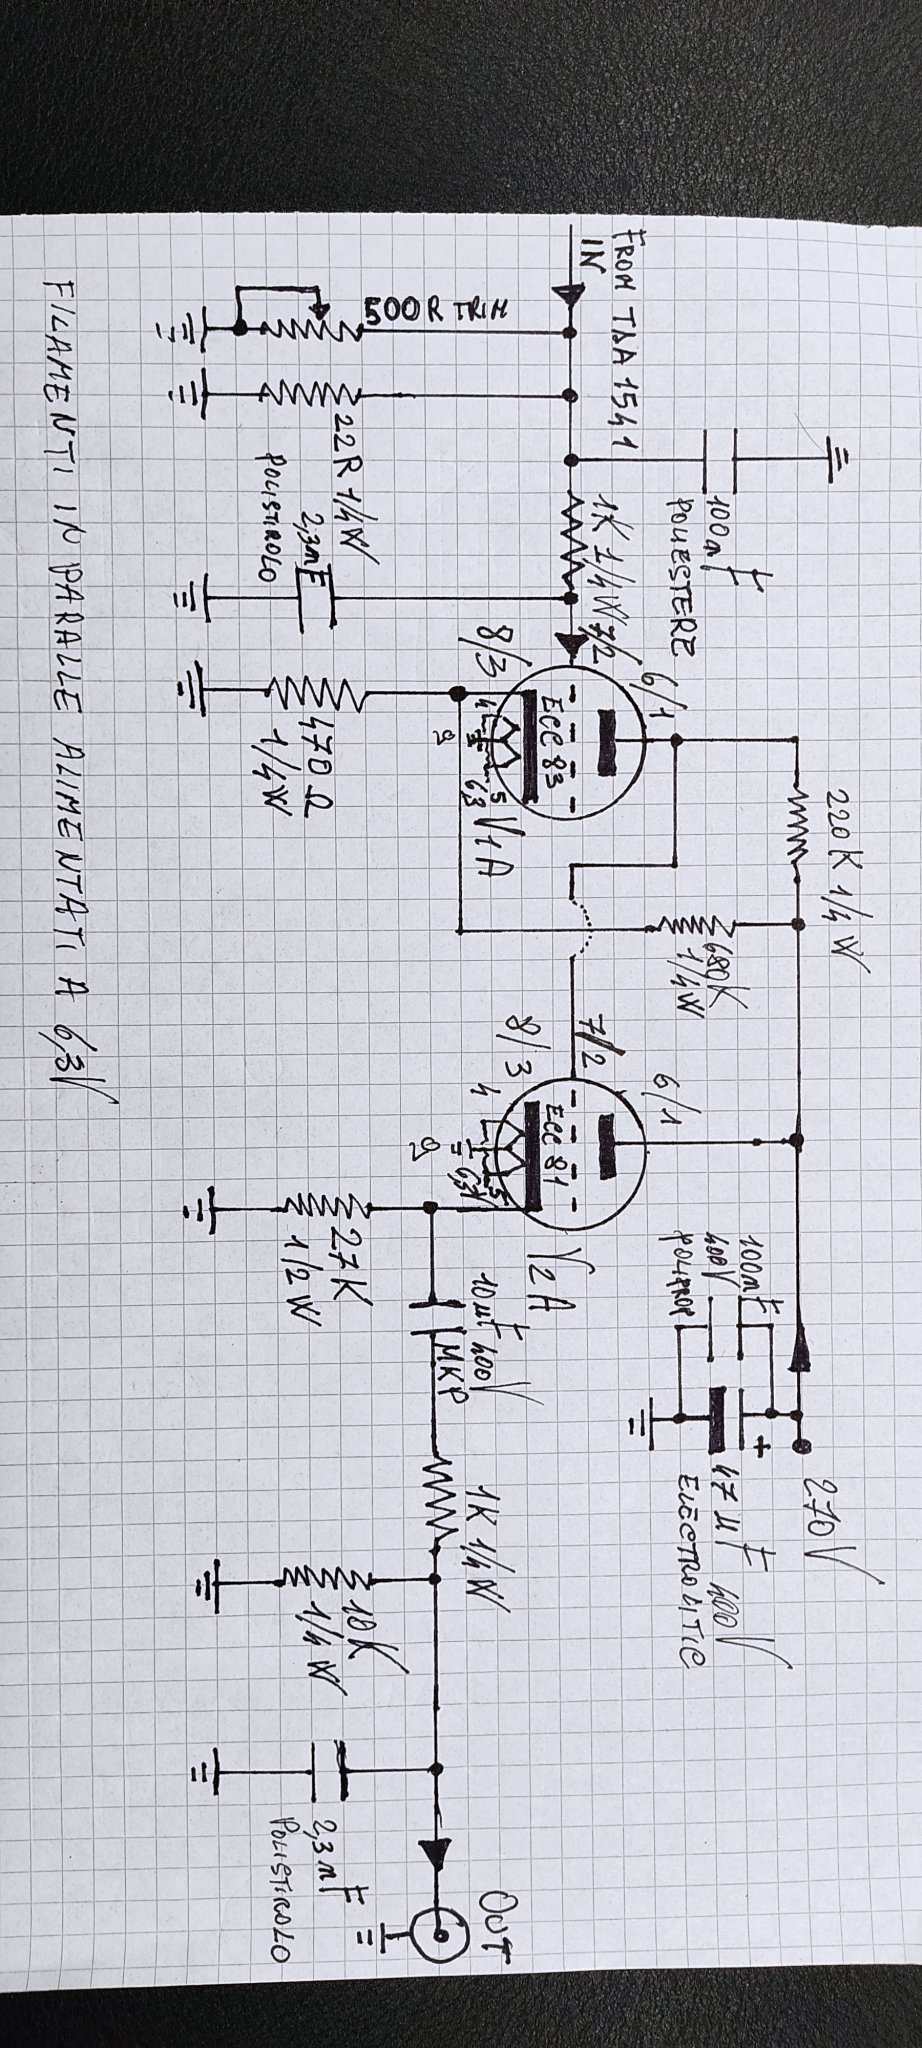 FROM TDA 1541
IN
500R TRIM
22R 1/4W
100nF
POLIESTERE
1K 1/4W
2,3nF
POLISTIROLO
7/2
6/1
8/3
ECC 83
4
5
9
6,3
V1A
470Ω
1/4W
220K 1/4W
680K
1/4W
7/2
6/1
8/3
ECC 81
4
5
9
6,3V
V2A
27K
1/2W
100nF
400V
POLIPROP
+
47µF 400V
ELECTROLITIC
270V
10µF 400V
MKP
1K 1/4W
18K
1/4W
2,3nF
POLISTIROLO
OUT
FILAMENTI IN PARALLE ALIMENTATI A 6,3V